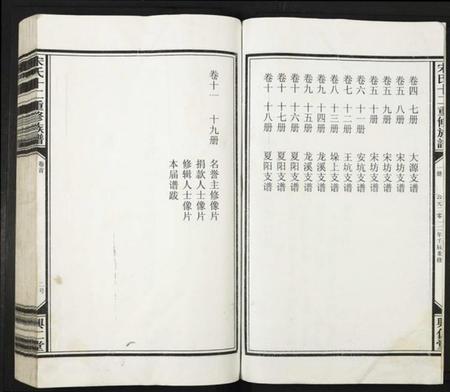 宋氏十二重修族谱
卷四 七册 大源支谱
卷五 八册 宋坊支谱
卷五 九册 宋坊支谱
卷五 十册 宋坊支谱
卷六 十一册 安坑支谱
卷七 十二册 王坑支谱
卷八 十三册 垛上支谱
卷九 十四册 龙溪支谱
卷九 十五册 龙溪支谱
卷十 十六册 夏阳支谱
卷十 十七册 夏阳支谱
卷十 十八册 夏阳支谱
卷十一 十九册 名誉主修像片
捐款人士像片
修辑人士像片
本届谱跋
宋氏十二重修族谱
卷首
二号